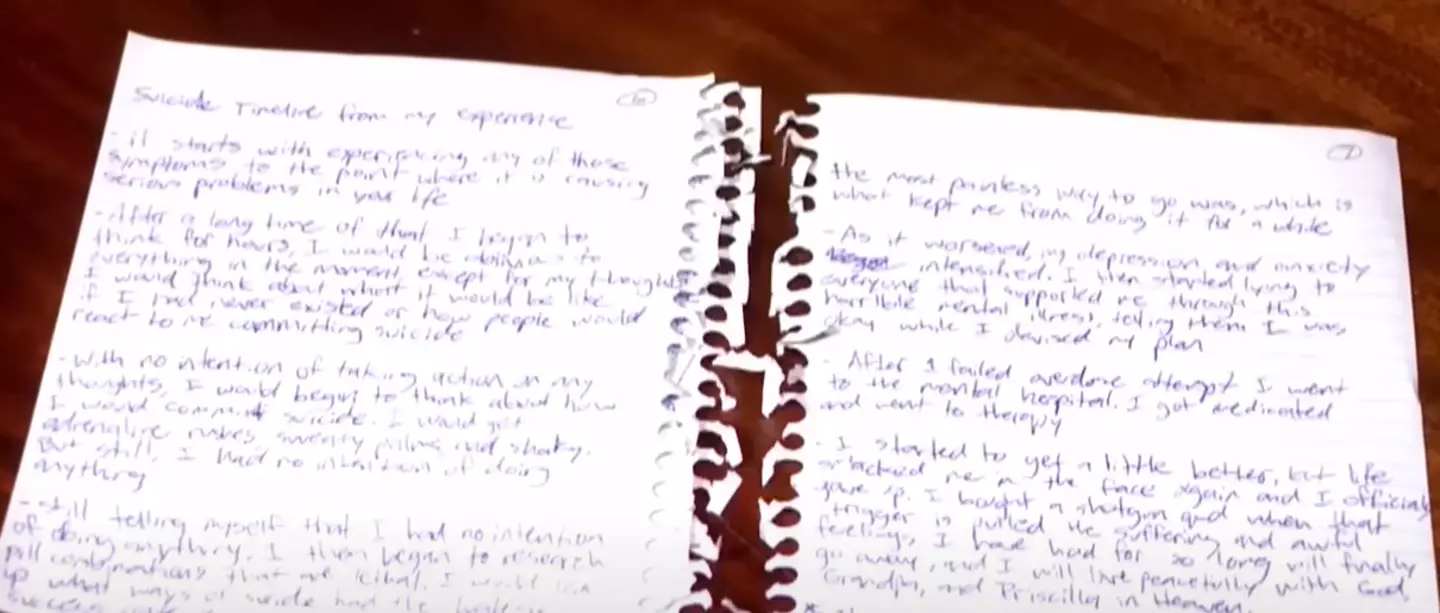 Suicide Timeline from my experience
6
- it starts with experiencing any of those
symptoms to the point where it is causing
serious problems in your life
- After a long time of that I began to
think for hours, I would be oblivious to
everything in the moment, except for my thoughts
I would think about what it would be like
if I had never existed or how people would
react to me committing suicide
- With no intention of taking action on my
thoughts, I would begin to think about how
I would commit suicide. I would get
adrenaline rushes, sweaty palms and shaky.
But still, I had no intention of doing
anything
- still telling myself that I had no intention
of doing anything. I then began to research
pill combinations that are lethal. I would
up what ways of suicide had the
success
7
the most painless way to go was, which is
what kept me from doing it for a while
- As it worsened, my depression and anxiety
intensified. I then started lying to
everyone that supported me through this
horrible mental illness, telling them I was
okay while I devised my plan
- After 1 failed overdose attempt I went
to the mental hospital. I got medicated
and went to therapy
- I started to get a little better, but life
smacked me in the face again and I officially
gave up. I bought a shotgun and when that
trigger is pulled the suffering and awful
feelings I have had for so long will finally
go away, and I will live peacefully with God,
Grandpa, and Priscilla in Heaven.